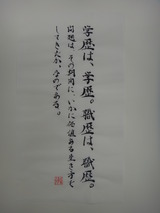 学歴は、学歴。職歴は、職歴。
問題は、その期間に、いかに価値ある生き方を
してきたか、なのである。